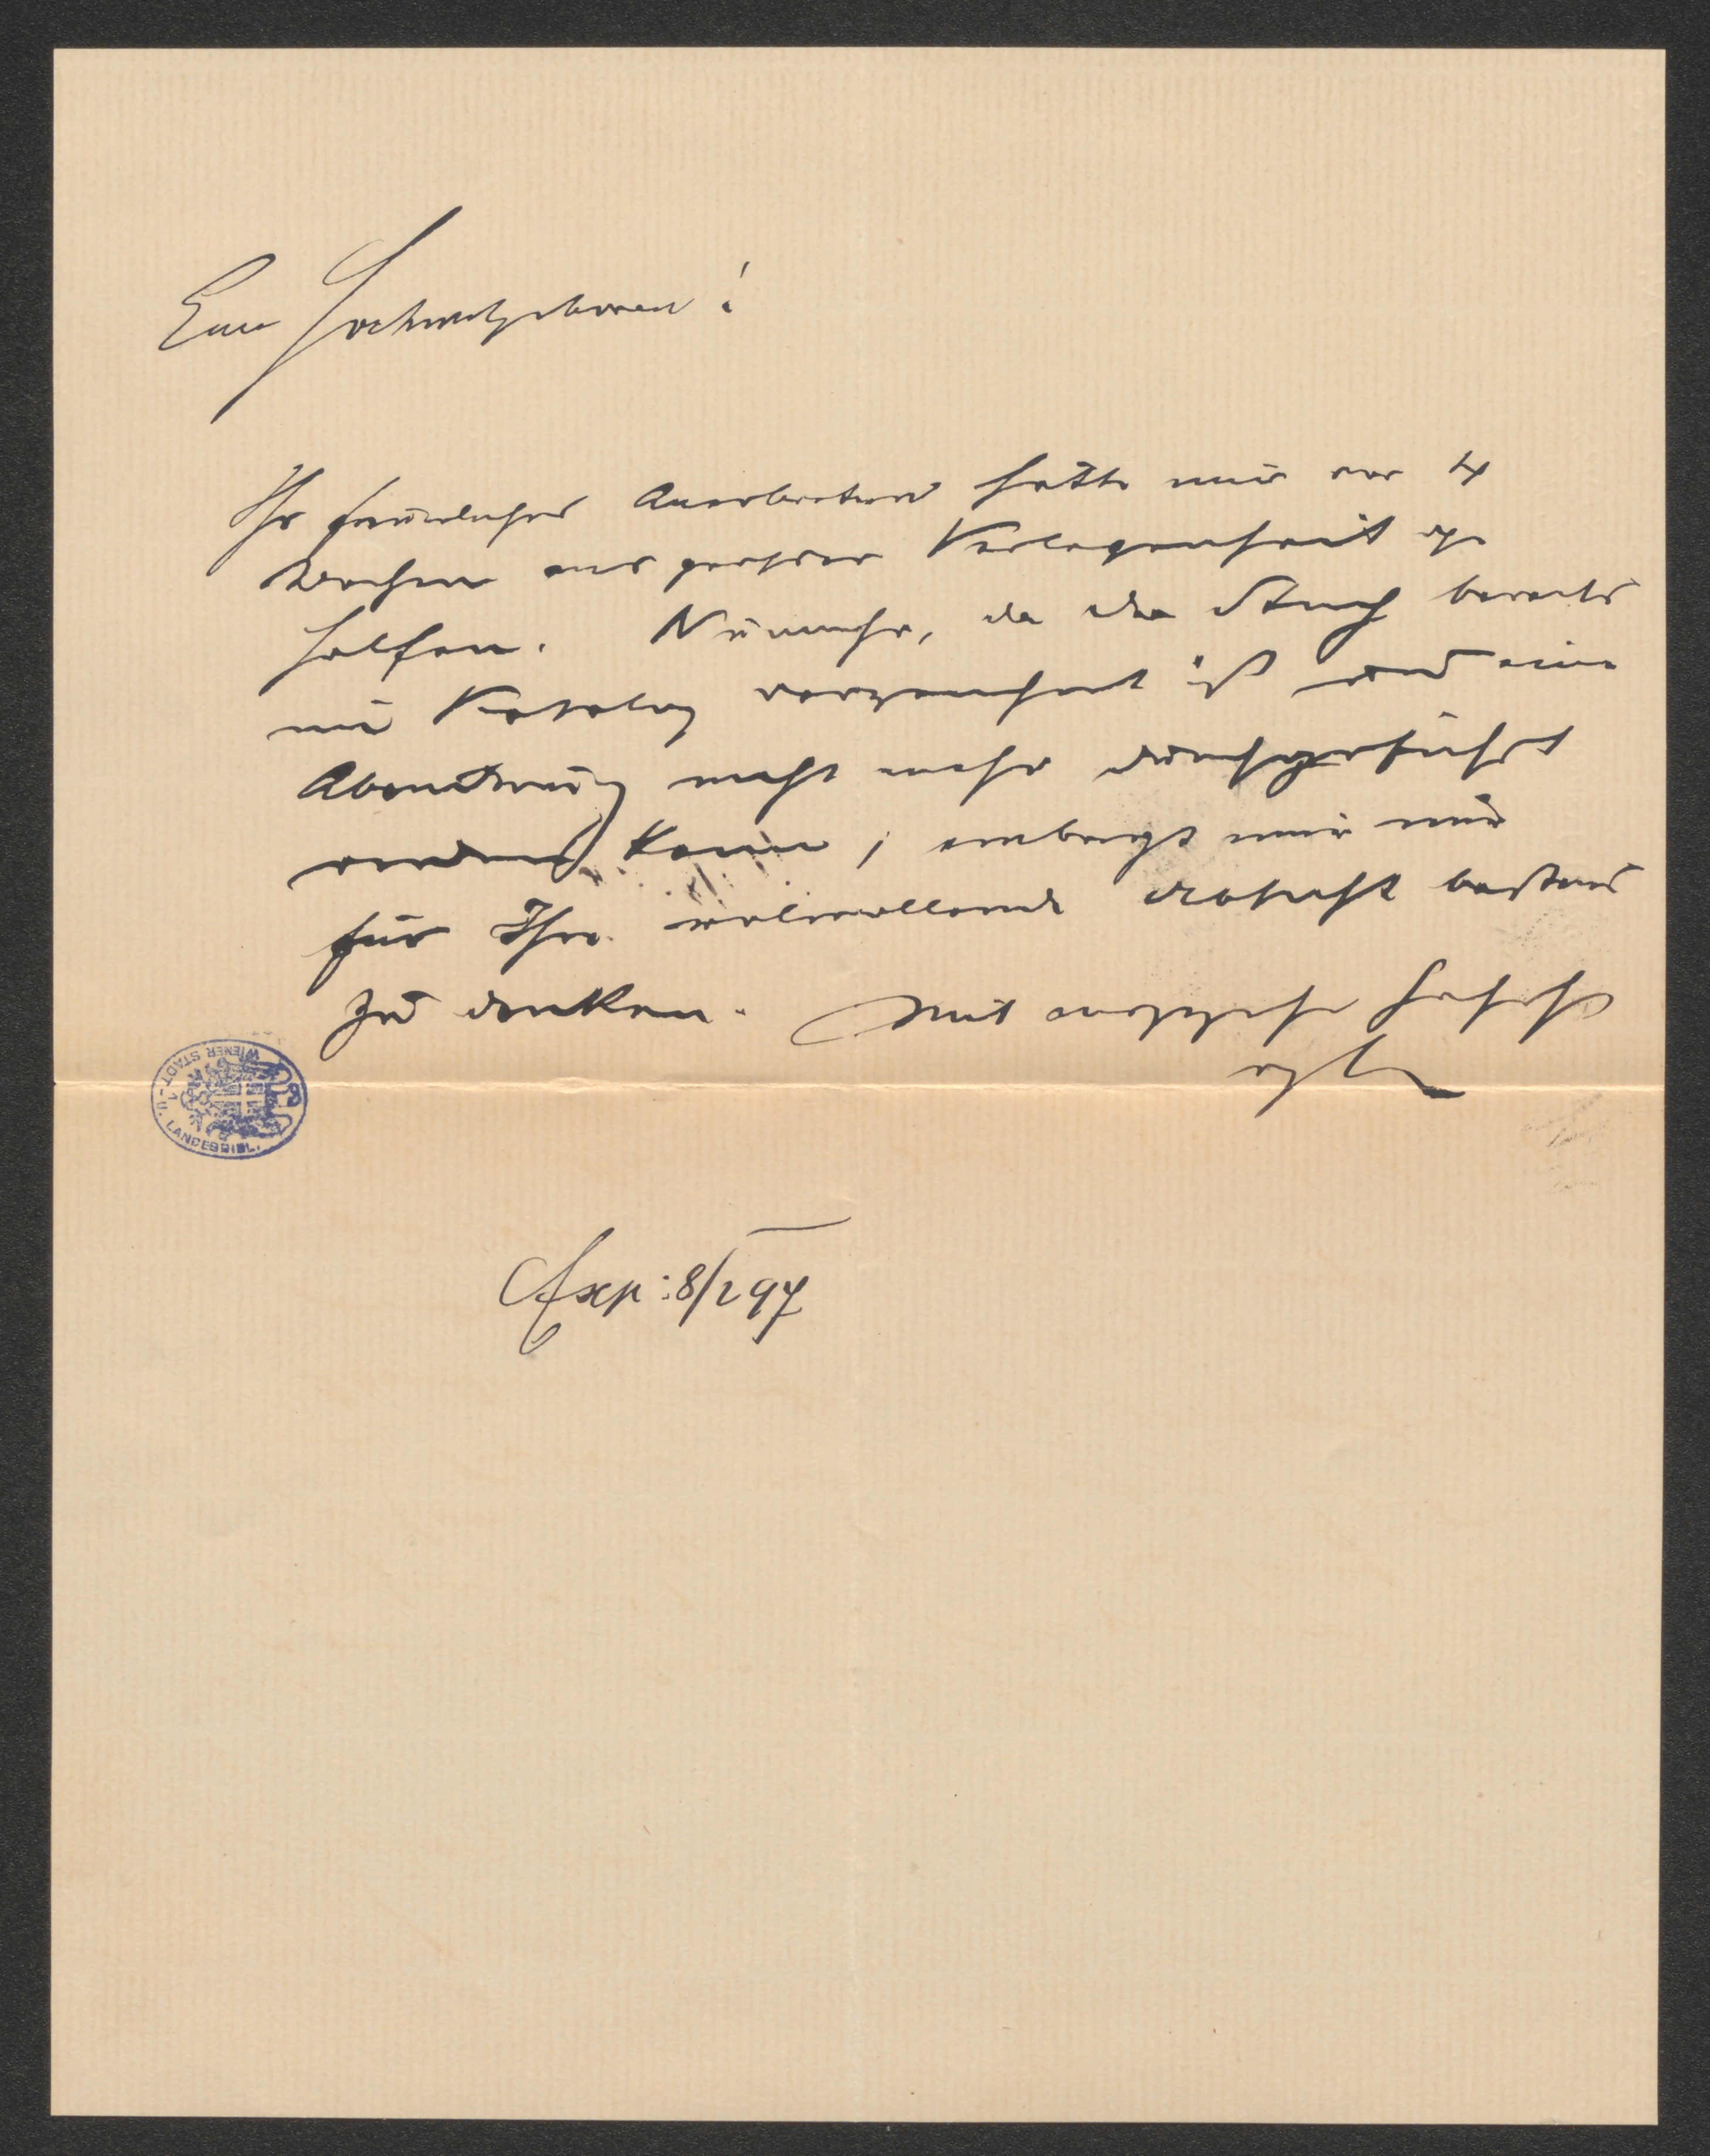 Euer Hochwohlgeboren!
Ihr freundliches Anerbieten hätte mir vor 4
Wochen aus großer Verlegenheit ge
holfen. Nunmehr, da das Stück bereits
im Katalog verzeichnet ist und eine
Abänderung nicht mehr durchgeführt
werden kann, erübrigt mir nur
für Ihre wolwollende Absicht bestens
zu danken. Mit ausgezeichn Hochacht
Exp: 8/2 97
WIENER STADT- u. LANDESBIBL.